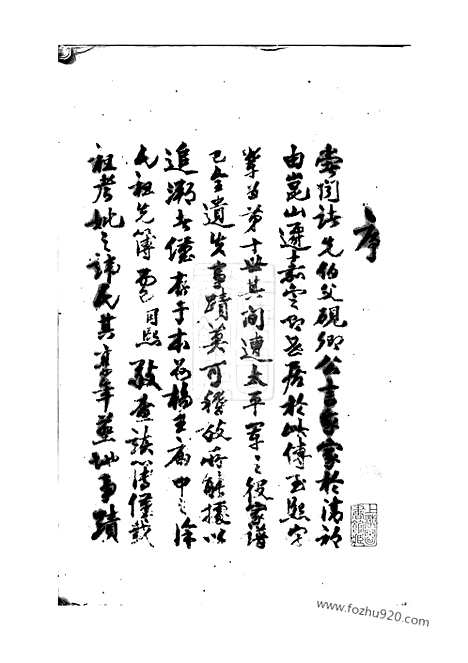 序
嘗聞諸先伯父硯卿公言我家於清初
由崑山遷嘉定即世居於此傳至熙字
輩為第十世其間遭太平軍之役家譜
已全遺失事蹟莫可稽攷所能據以
追溯者僅存于本邑楊王廟中之徐
氏祖先簿而已目熙敬查該簿僅載
祖考妣之諱氏其享年墓地事蹟
www.fozhu920.com